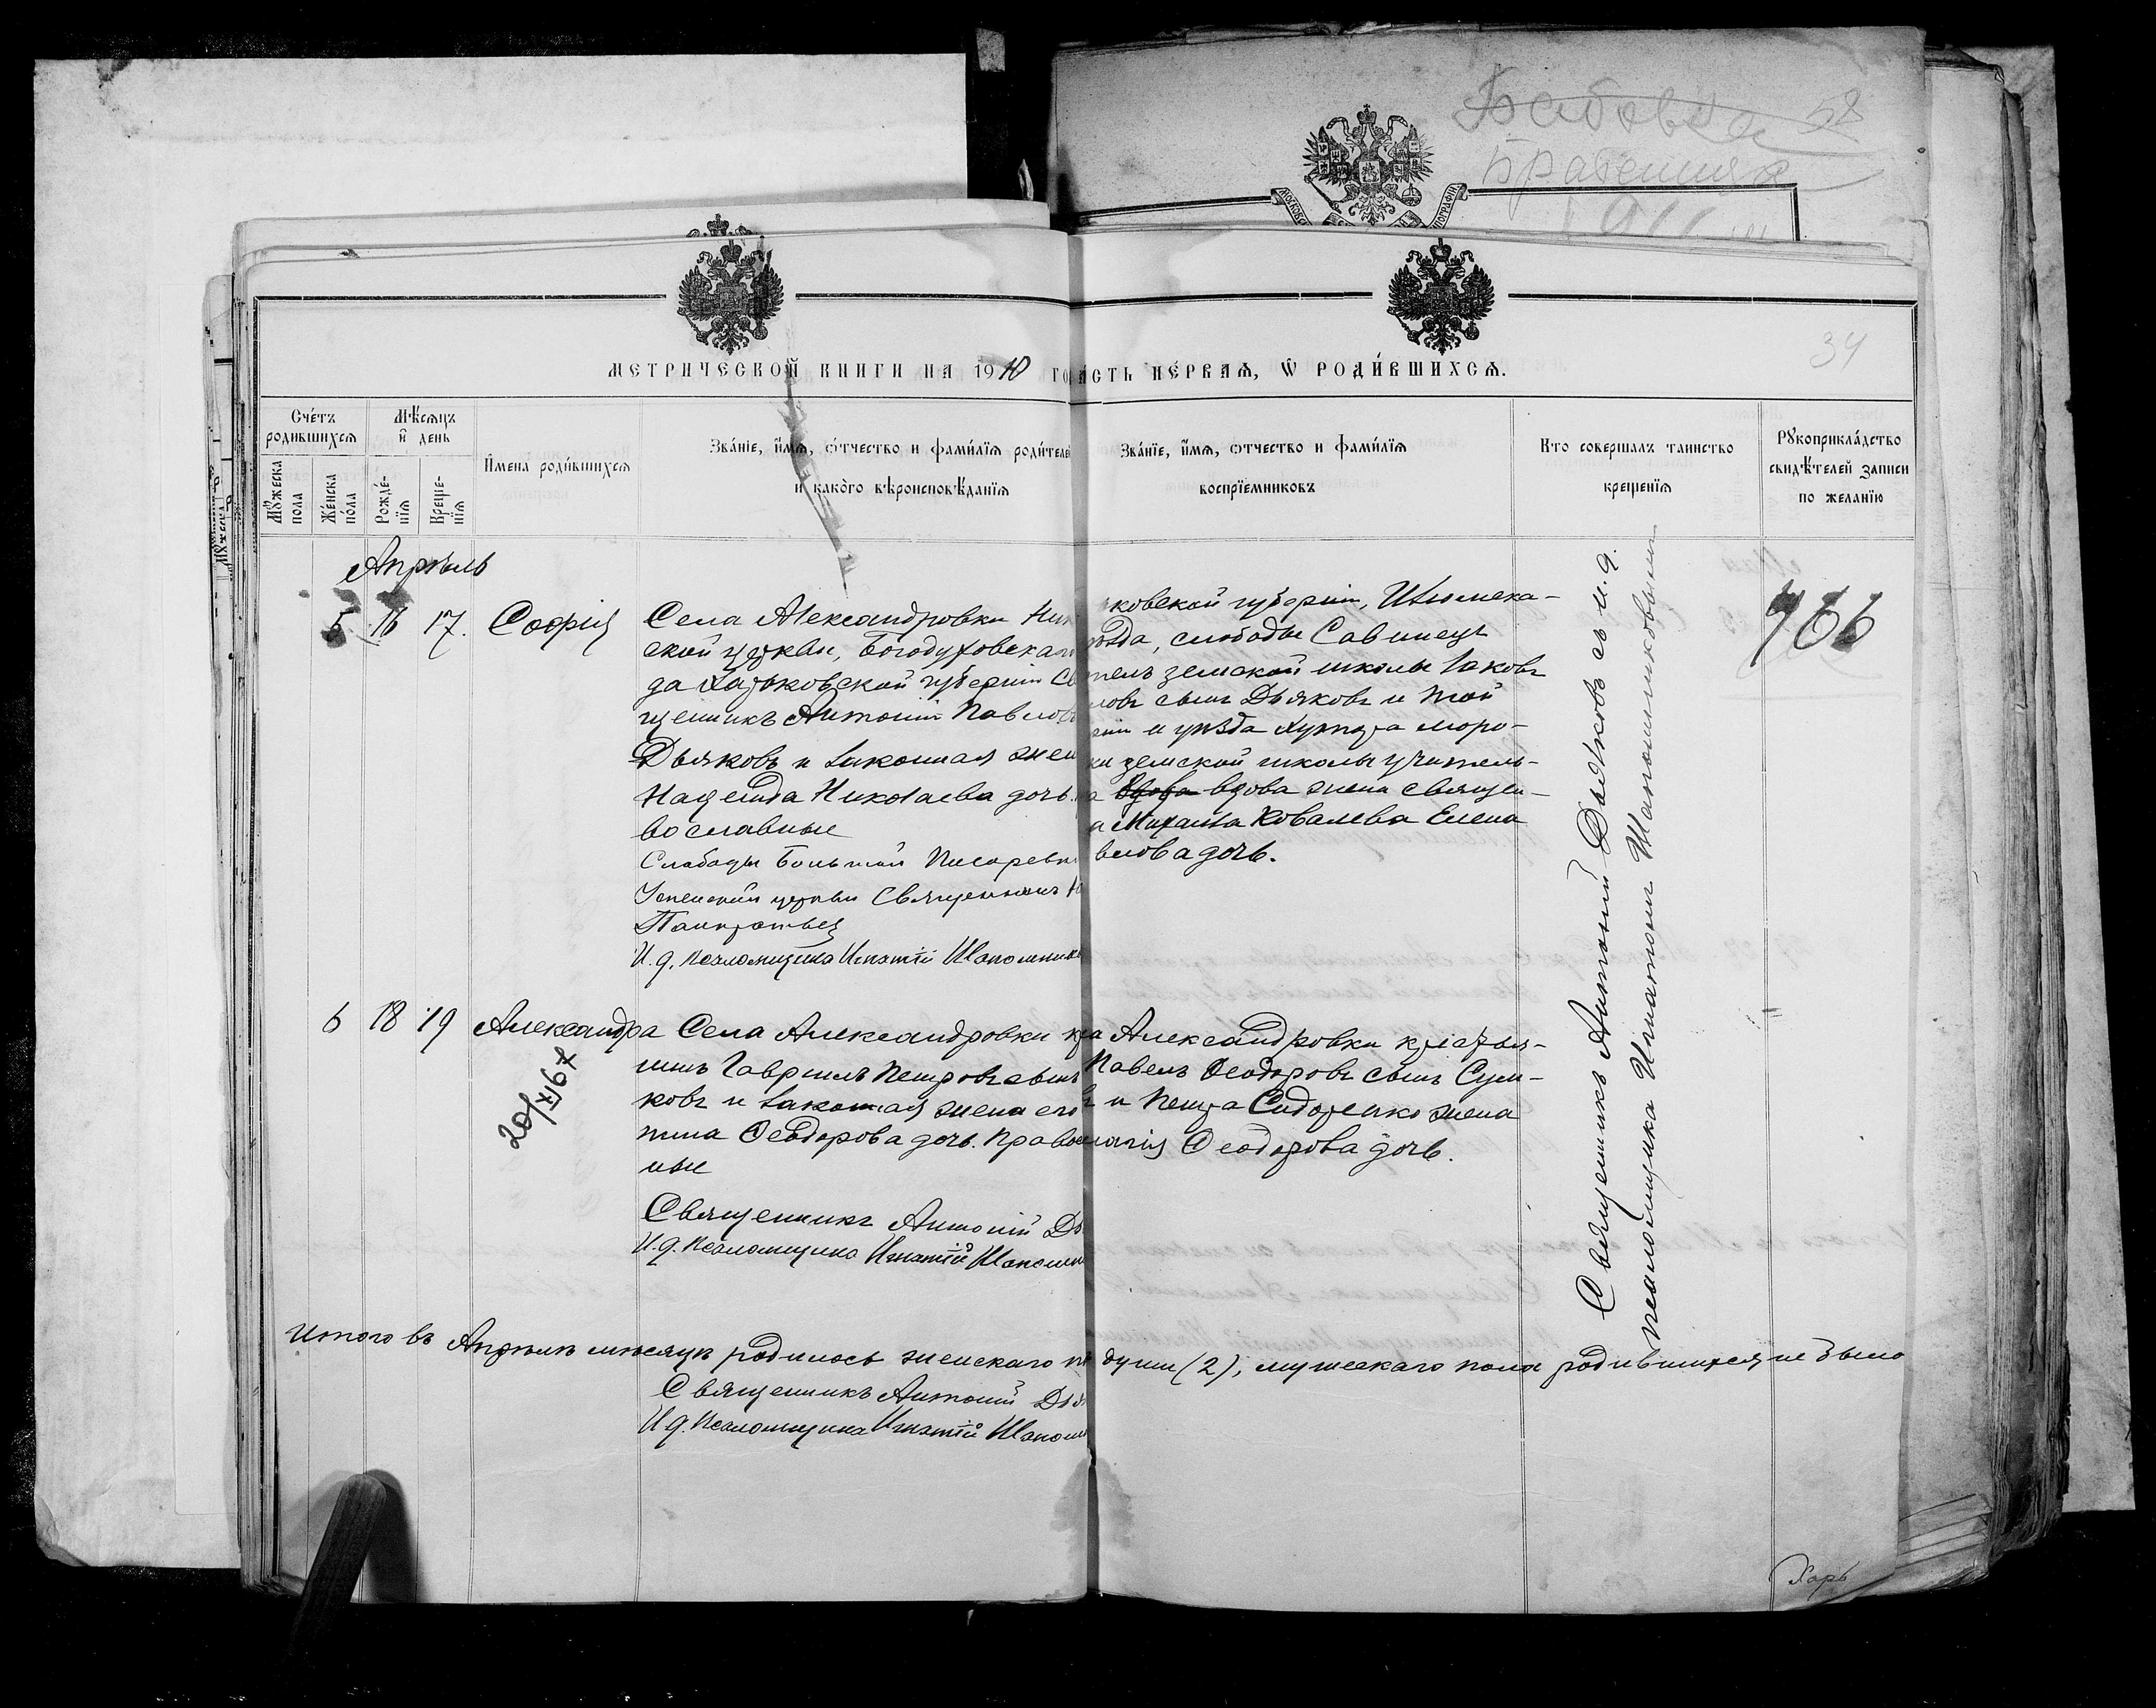 58
Братениця
1911
МОСКОВС
ПОГРАФІИ
34
МЕТРИЧЕСКОЙ КНИГИ НА 1910 ГО
АСТЬ ПЕРВАѦ, Ѡ РОДИВШИХСѦ.
Счетъ родившихсѧ
Мꙋжеска пола
Женска пола
Мѣсѧцъ и день
Рожде-нїѧ
Креще-нїѧ
Имена родившихсѧ
Званїе, имѧ, отчество и фамилїѧ родителе
и какого вѣроисповѣданїѧ
Званїе, имѧ, отчество и фамилїѧ
воспрїемниковъ
Кто совершалъ таинство
крещенїѧ
Рꙋкоприкладство
свидѣтелей записи
по желанїю
Апрѣль
5 16 17. Софія
Села Александровки Ник
ской церкви, Богодуховскаго
да Харьковской губерніи Св
щенникъ Антоній Павлов
Дьяковъ и законная жен
Надежда Николаева дочь.
вославные
Слободы Большой Писаревк
Успенской церкви Священникъ
Панкратьев
И. д. псаломщика Игнатій Шапошник
ковской губерніи, Изюмска-
ѣзда, слободы Савинецъ
тель земской школы Іаковъ
ловъ сынъ Дьяковъ и той
ніи и уѣзда хутора Моро-
ки земской школы учитель-
а вдова вдова жена священ-
а Михаила Ковалева Елена
влова дочь.
Священникъ Антоній Дьяковъ съ и. д.
псаломщика Игнатіемъ Шапошниковымъ
966
6 18 19 Александра
20/XI 67
Села Александровки кр
нинъ Гавріилъ Петровъ сынъ
ковъ и законная жена его
тина Ѳеодорова дочь. Правос
ные
Священникъ Антоній Дь
И. д. псаломщика Игнатій Шапошн
а Александровки крестья-
Павелъ Ѳеодоровъ сынъ Сум-
и Петра Сидоренко жена
Ѳеодорова дочь.
Итого въ Апрѣлѣ мѣсяцѣ родилось женскаго п души (2), мужескаго пола родившихся не было
Священникъ Антоній Дья
И. д. псаломщика Игнатій Шапош
Харь